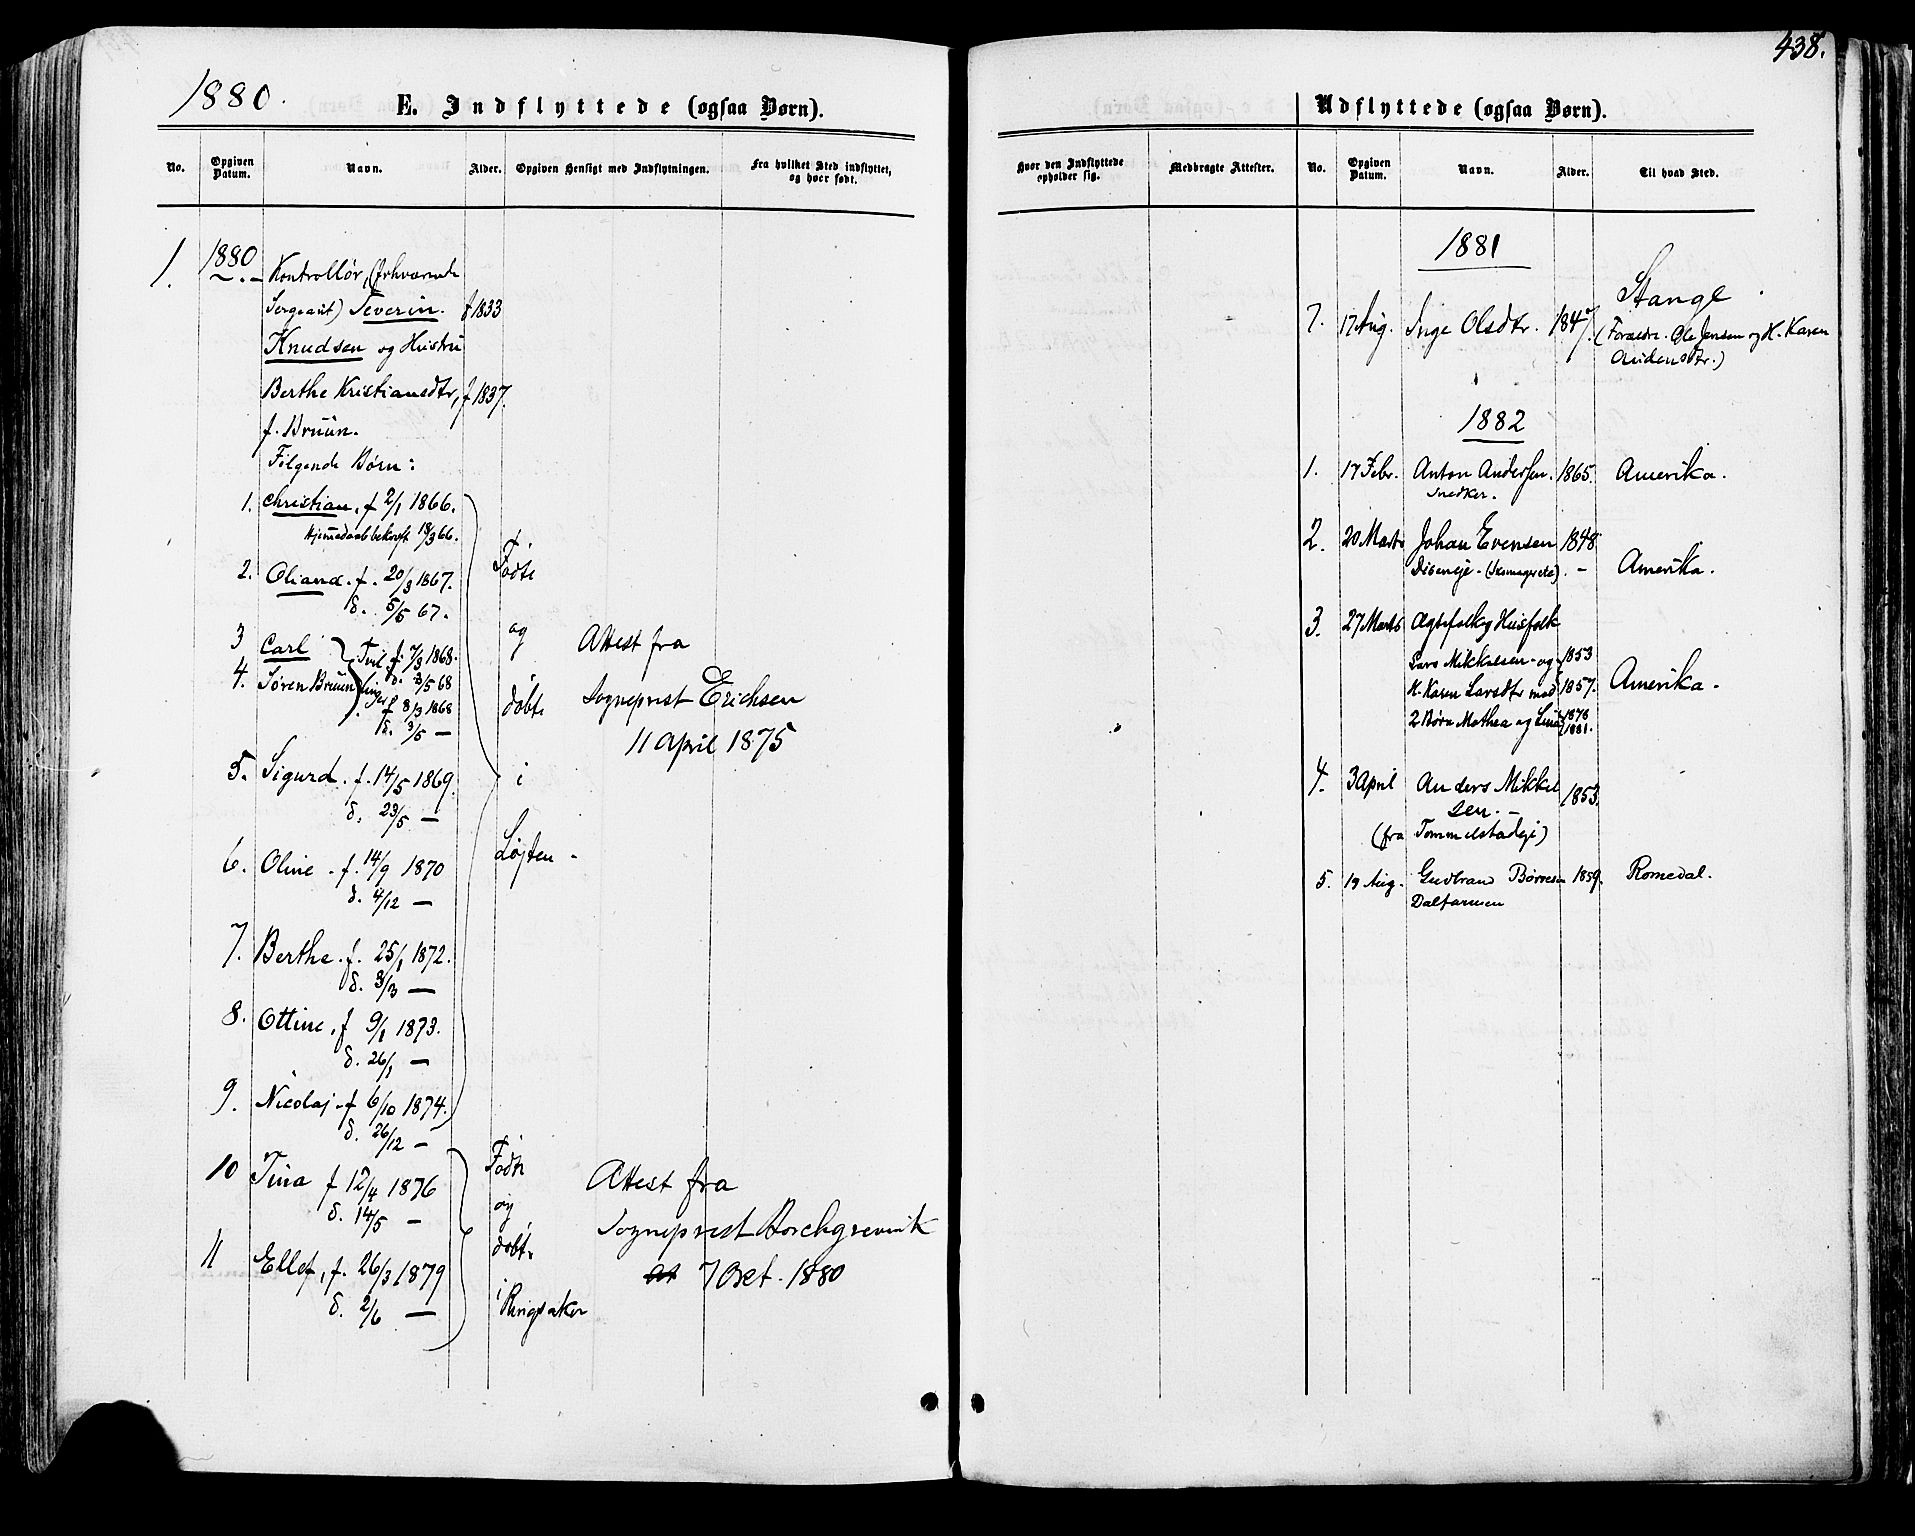 438.
1880.
E. Indflyttede (ogsaa Børn).
No. Opgiven Datum. Navn. Alder. Opgiven Hensigt med Indflytningen. Fra hvilket Sted indflyttet, og hvor født.
1. 1880 Kontrollør, (forhværende
Sergeant) Severin f 1833
Knudsen og Hustru
Berthe Kristiansdtr, f 1837.
f. Bruun.
Følgende Børn:
1. Christian, f 2/1 1866.
Hjemmedaab bekræft 18/3 66.
2. Oliand. f. 20/3 1867.
d. 5/5 67.
3 Carl Tvil f. 7/3 1868.
d. 3/5 68
4. Søren Bruun linger f 8/3 1868
d. 3/5 —
5. Sigurd. f. 14/5 1869.
d. 23/5 —
6. Oline. f. 14/9 1870
d. 4/12 —
7. Berthe. f. 25/1 1872.
d. 3/3 —
8. Ottine, f 9/1 1873.
d. 26/1 —
9. Nicolaj. f 6/10 1874.
d. 26/12 —
Fødte
og
døbte
i
Løjten
Attest fra
Sogneprest Erichsen
11 April 1875
10 Tina f 12/4 1876
d. 14/5 —
11 Ellef, f. 26/3 1879
d. 2/6 —
Fødte
og
døbte
i Ringsaker
Attest fra
Sogneprest Borchgrevink
7 Oct. 1880
Hvor den Indflyttede opholder sig. Medbragte Attester.
Udflyttede (ogsaa Børn).
No. Opgiven Datum. Navn. Alder. Til hvad Sted.
1881
7. 17 Aug. Inge Olsdtr. 1847. Stange
(Forældre. Ole Jensen og H. Karen
1882
1. 17 Febr. Anton Andersen. 1865. Amerika.
Snedker.
2. 20 Marts Johan Evensen 1848
Diseneje - Amerika.
3. 27 Marts Ægtefolk og Husfolk
Lars Mikkelsen og 1853
H. Karen Larsdtr med 1857. Amerika.
2 Børn Mathea og Lina 1878 1881.
4. 3 April Anders Mikkel 1853.
sen. —
(fra Tommelstadeje)
5. 19 Aug. Gudbrand Børresen 1859. Romedal.
Dalfarmen